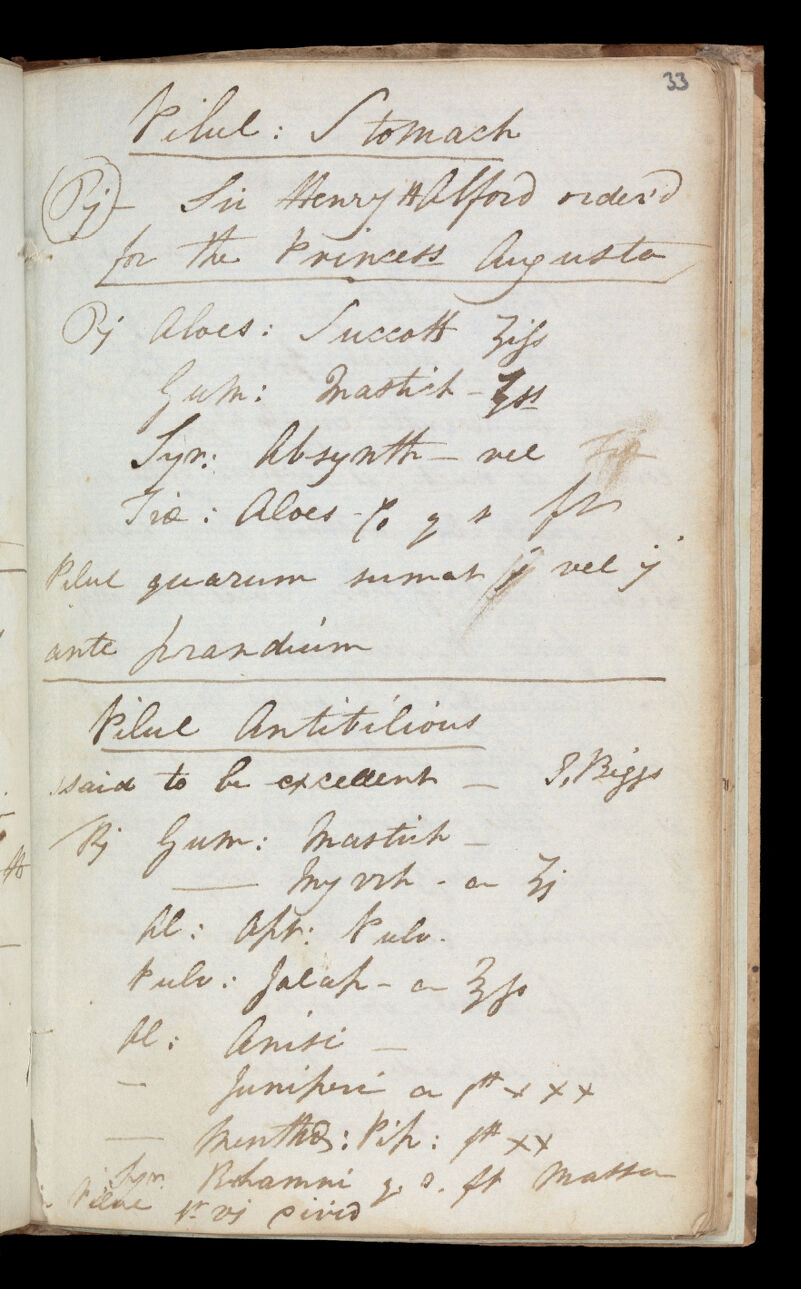 33
Pilul: Stomach
℞ - Sir Henry Halford order'd
for the Princess Augusta
℞ Aloes: Succott ʒiſs
Gum: Mastich - ʒss
Syr: Absynth - vel
Træ: Aloes - C, q s ft
Pilul quarum sumat j vel ij
ante prandium
Pilul Antibilious
said to be excellent - J, Biggs
℞ Gum: Mastich -
—— Myrrh - a ʒj
Al: Opt: Pulv.
Pulv: Jalap - a ʒſs
Ol: Anisi -
- Juniperi a gtt xxx
—— Menthæ: Pip: gtt xx
Syr: Rhamni q. s. ft Massa
Pilul gr vj divid